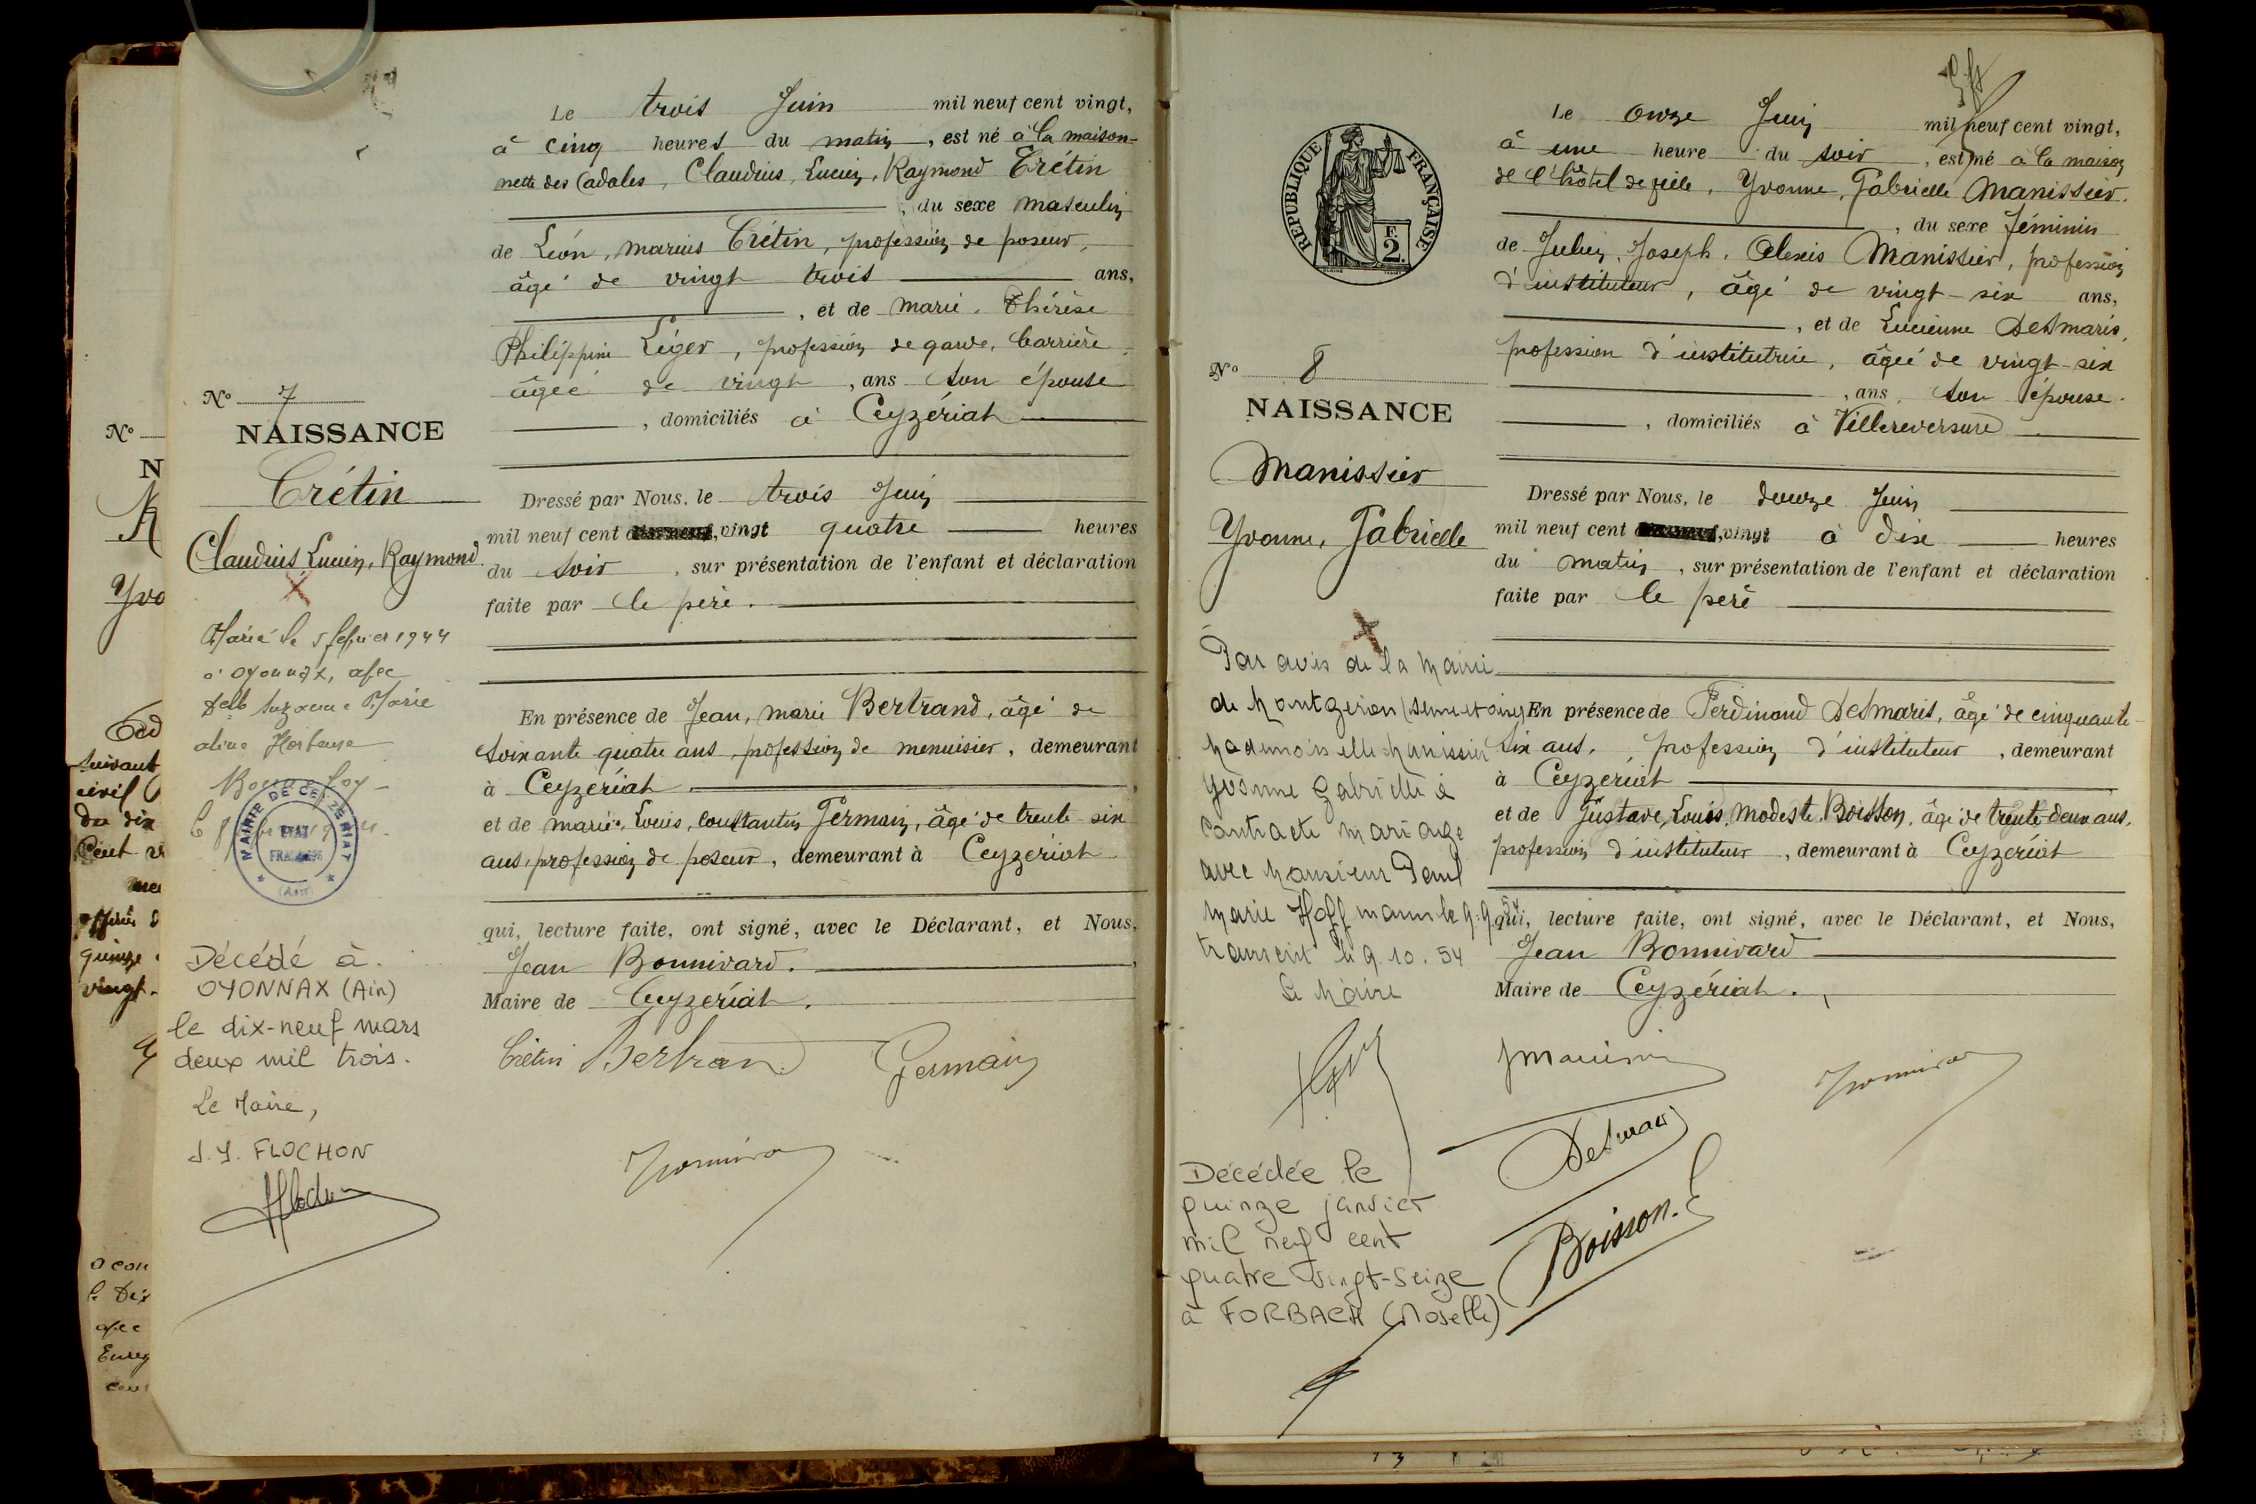 Le trois Juin mil neuf cent vingt,
à cinq heures du matin, est né à la maison-
nette des Cadales, Claudius, Lucien, Raymond Crétin
, du sexe masculin
de Léon, Marius Crétin, profession de poseur,
âgé de vingt trois ans,
, et de Marie, Thérèse
Philippine Léger, profession de garde, barrière,
âgée de vingt, ans son épouse
, domiciliés à Ceyzériat
Nº 7
NAISSANCE
Crétin
Claudius, Lucien, Raymond.
Dressé par Nous, le trois Juin
mil neuf cent vingt quatre heures
du soir, sur présentation de l'enfant et déclaration
faite par le père.
Marié le 5 février 1944
à Oyonnax, avec
Delle Suzanne Marie
Aline Hortense
MAIRIE DE CEYZERIAT
ETAT
FRANÇAIS
(Ain)
En présence de Jean, Marie Bertrand, âgé de
soixante quatre ans, profession de menuisier, demeurant
à Ceyzériat
et de Marie, Louis, Constantin Germain, âgé de trente six
ans, profession de poseur, demeurant à Ceyzériat
qui, lecture faite, ont signé, avec le Déclarant, et Nous,
Jean Bonnivard.
Maire de Ceyzériat.
Crétin Bertrand Germain
Décédé à
OYONNAX (Ain)
le dix-neuf mars
deux mil trois.
Le Maire,
J.Y. FLOCHON
Le onze Juin mil neuf cent vingt,
à une heure du soir, est né à la maison
de l'hôtel de ville, Yvonne, Gabrielle Manissier.
, du sexe féminin
de Julien, Joseph, Alexis Manissier, profession
d'instituteur, âgé de vingt-six ans,
, et de Lucienne Desmaris,
profession d'institutrice, âgée de vingt-six
, ans, son épouse.
, domiciliés à Villereversure
REPUBLIQUE FRANÇAISE
F.
2.
Nº 8
NAISSANCE
Manissier
Yvonne, Gabrielle
Dressé par Nous, le douze Juin
mil neuf cent vingt à dix heures
du matin, sur présentation de l'enfant et déclaration
faite par le père
Par avis de la Mairie
de Montgeron (Seine et Oise)
Mademoiselle Manissier
Yvonne Gabrielle a
contracté mariage
avec Monsieur Paul
Marie Hoffmann le 9.9.54
transcrit le 9.10.54
Le Maire
En présence de Ferdinand Desmaris, âgé de cinquante-
six ans, profession d'instituteur, demeurant
à Ceyzériat
et de Gustave, Louis, Modeste Boisson, âgé de trente-deux ans,
profession d'instituteur, demeurant à Ceyzériat
qui, lecture faite, ont signé, avec le Déclarant, et Nous,
Jean Bonnivard
Maire de Ceyzériat.
Desmaris
Boisson.
Décédée le
quinze janvier
mil neuf cent
quatre vingt-seize
à FORBACH (Moselle)